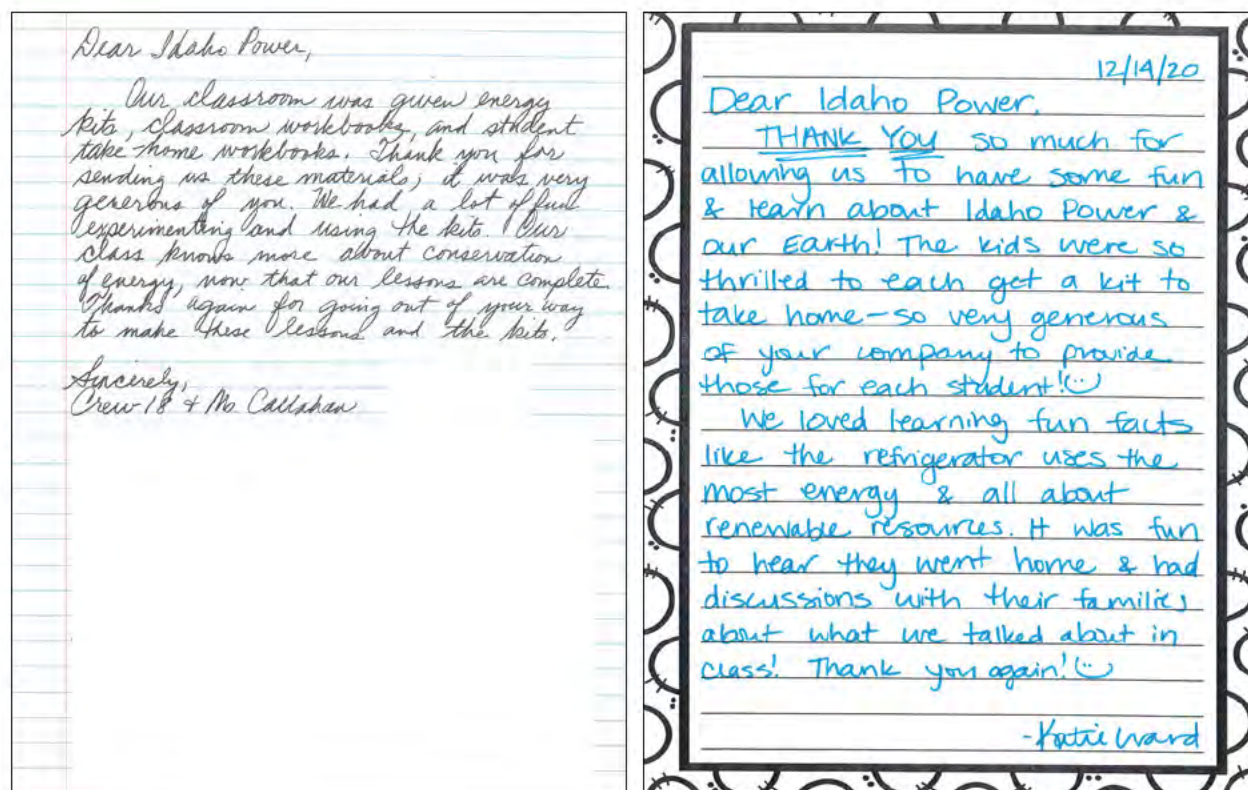 Dear Idaho Power,
Our classroom was given energy
kits, classroom workbooks, and student
take-home workbooks. Thank you for
sending us these materials; it was very
generous of you. We had a lot of fun
experimenting and using the kits. Our
class knows more about conservation
of energy, now that our lessons are complete.
Thanks again for going out of your way
to make these lessons and the kits.
Sincerely,
Crew 18 + Ms Callahan
12/14/20
Dear Idaho Power,
THANK YOU so much for
allowing us to have some fun
& learn about Idaho Power &
our Earth! The kids were so
thrilled to each get a kit to
take home-so very generous
of your company to provide
those for each student!
We loved learning fun facts
like the refrigerator uses the
most energy & all about
renewable resources. It was fun
to hear they went home & had
discussions with their families
about what we talked about in
class! Thank you again!
-Katie Ward